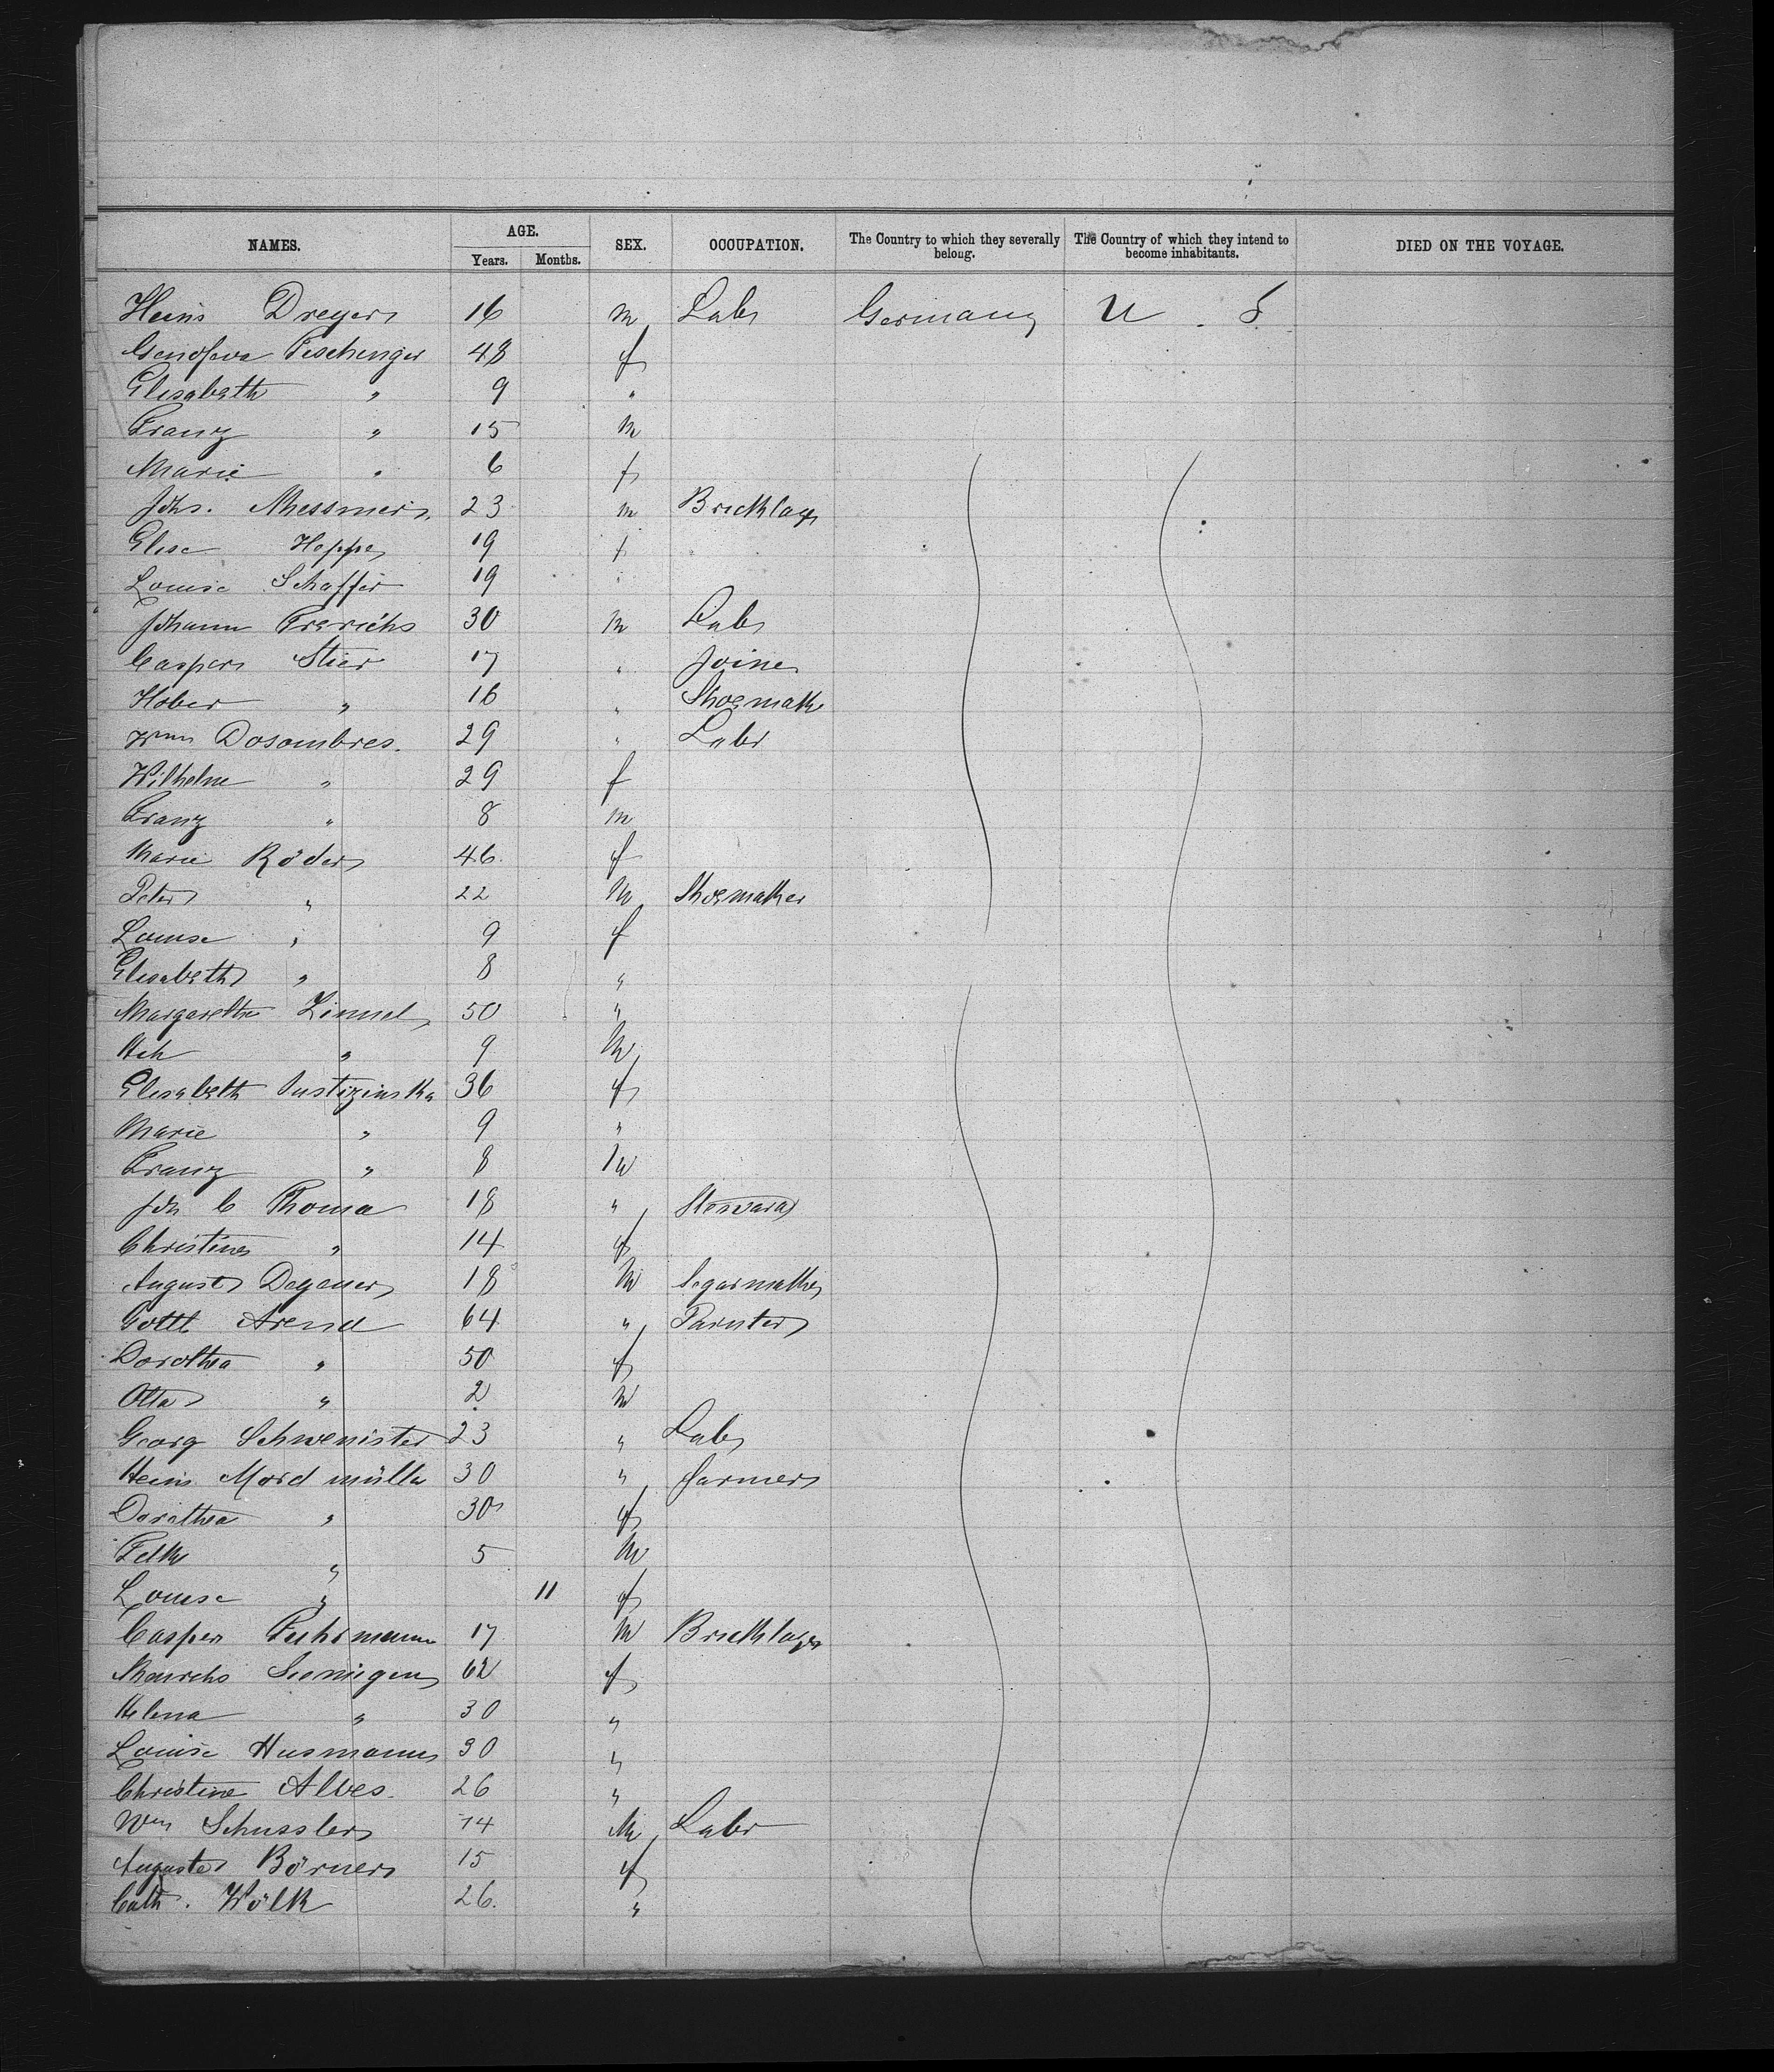 NAMES. AGE. SEX. OCCUPATION. The Country to which they severally belong. The Country of which they intend to become inhabitants. DIED ON THE VOYAGE.
Years. Months.
Heinr Dreyer 16 m Labr Germany U. S
Genofeva Fischinger 48 f
Elisabeth " 9 "
Franz " 15 m
Marie " 6 f
Johs. Messmer 23 m Bricklayr
Elise Hoppe 19 f
Louise Schaffer 19 "
Johann Frerichs 30 m Labr
Casper Stier 17 " Joiner
Hober " 16 " Shoemak
Wm Dosombres. 29 " Labr
Wilhelm " 29 f
Franz " 8 m
Marie Röder 46 f
Peter " 22 m Shoemaker
Louise " 9 f
Elisabeth " 8 "
Margarethe Zimmel 50 "
Hch " 9 m
Elisabeth Justizinska 36 f
Marie " 9 "
Franz " 8 m
Joh C Thoma 18 " Steward
Christine " 14 f
August Degener 18 m Segarmaker
Gottl Arend 64 " Painter
Dorothea " 50 f
Otto " 2 m
Georg Schwenister 23 " Labr
Heinr Mordmüller 30 " farmer
Dorothea " 30 f
" 5 m
Louise " 11 f
Casper Fuhrmann 17 m Bricklayer
62 f
Helena " 30 "
Louise Husmann 30 "
Christine Alves. 26 "
Wm Schussler 14 M Labr
Auguste Börner 15 f
Cath. Wölk 26. "